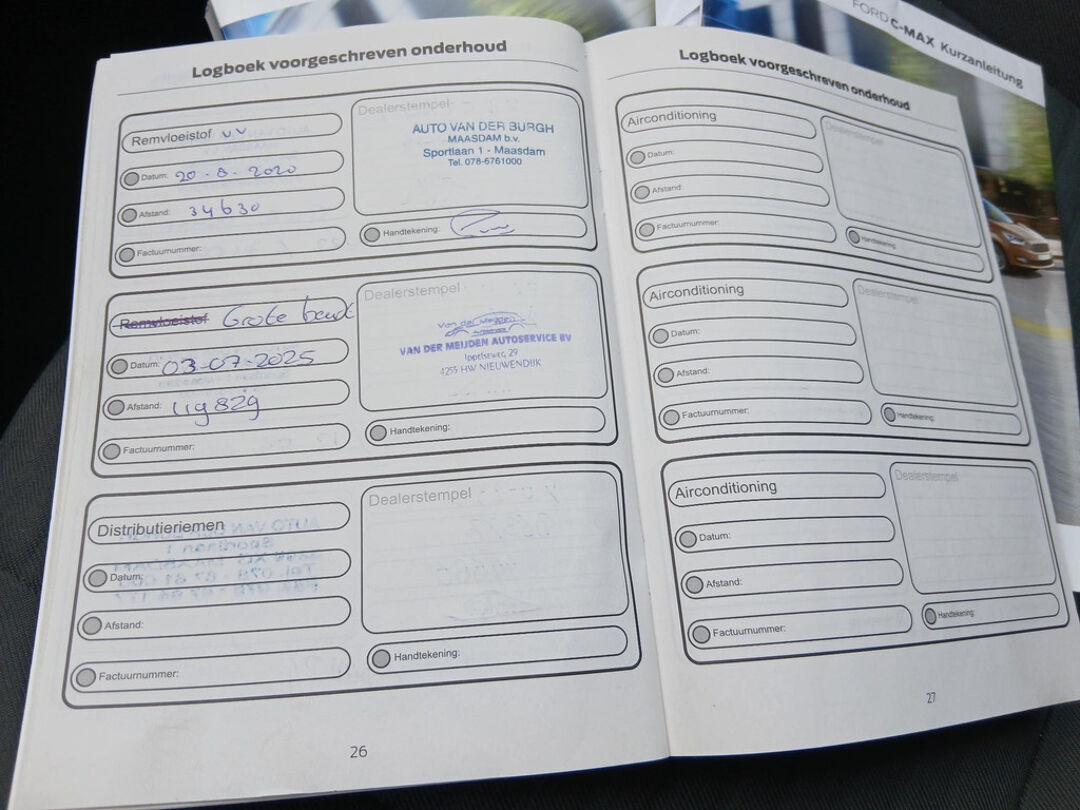 FORD C-MAX Kurzanleitung
Logboek voorgeschreven onderhoud
Remvloeistof v.v
Datum: 20-8-2020
Afstand: 34630
Factuurnummer:
Dealerstempel
AUTO VAN DER BURGH
MAASDAM b.v.
Sportlaan 1 - Maasdam
Tel. 078-6761000
Handtekening:
Remvloeistof Grote beurt
Datum: 03-07-2025
Afstand: 119829
Factuurnummer:
Dealerstempel
Van der Meijden
VAN DER MEIJDEN AUTOSERVICE BV
29
4255 HW NIEUWENDIJK
Handtekening:
Distributieriemen
Datum:
Afstand:
Factuurnummer:
Dealerstempel
Handtekening:
26
Logboek voorgeschreven onderhoud
Airconditioning
Datum:
Afstand:
Factuurnummer:
Dealerstempel
Handtekening:
Airconditioning
Datum:
Afstand:
Factuurnummer:
Dealerstempel
Handtekening:
Airconditioning
Datum:
Afstand:
Factuurnummer:
Dealerstempel
Handtekening:
27